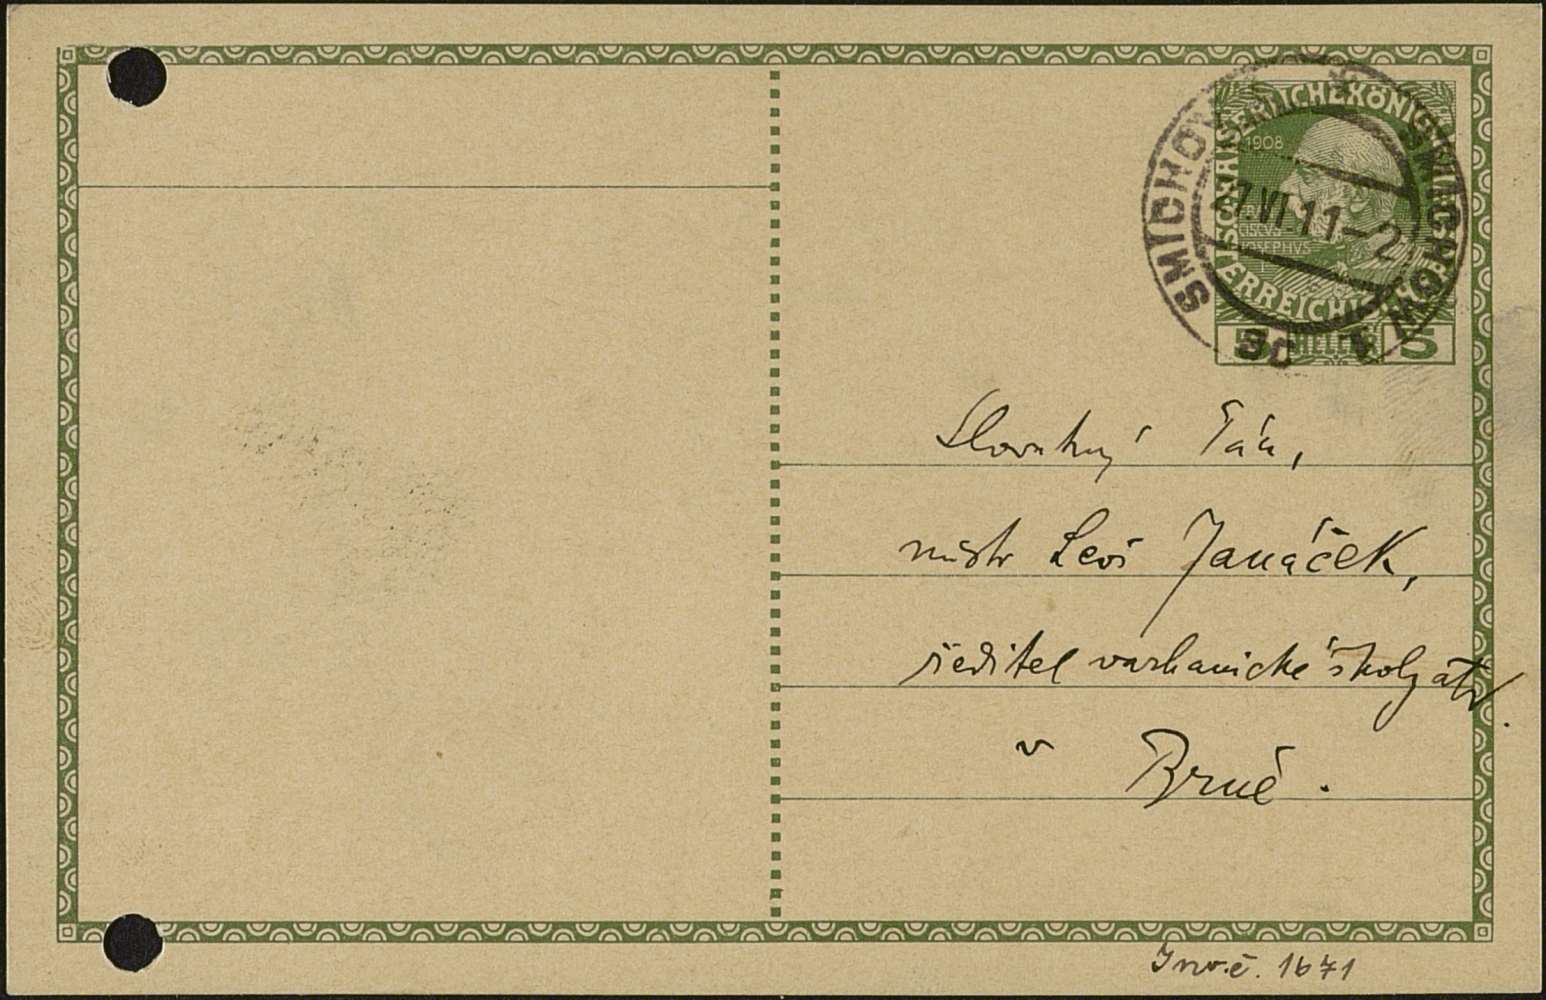 SMÍCHOV 1 * SMICHOW 1
3c
27.VI.11–2
KAISERLICHEKÖNIGL
ÖSTERREICHISCHE
1908
5 HELLER 5
Slovutný Pán,
mistr Leoš Janáček,
ředitel varhanické školy atd.
v Brně.
Inv.č. 1671